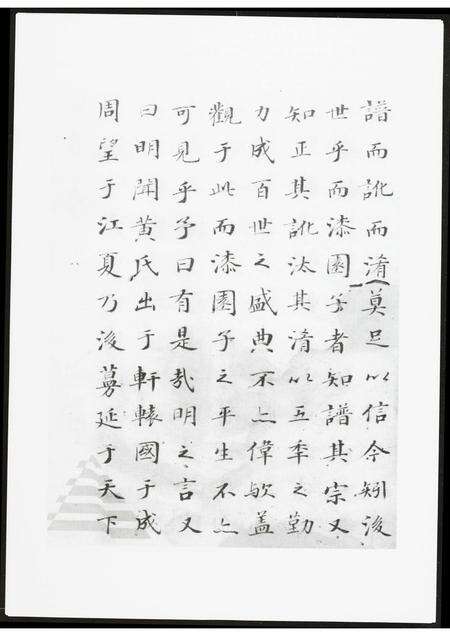 譜而訛而淆莫足以信今矧後
世乎而漆園子者知譜其宗又
知正其訛汰其淆以五季之勤
力成百世之盛典不亦偉歟蓋
觀于此而漆園子之平生不亦
可見乎予曰有是哉明之言又
曰明聞黃氏出于軒轅國于成
周望于江夏乃後蔓延于天下